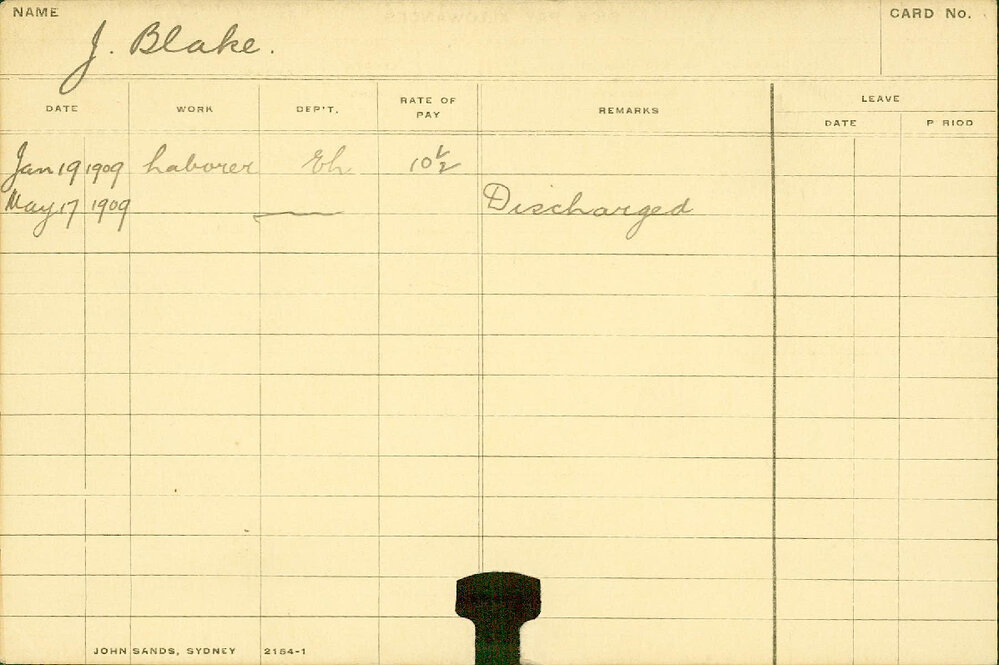 NAME J. Blake. CARD No.
DATE WORK DEP'T. RATE OF PAY REMARKS LEAVE
DATE P RIOD
Jan 19 1909 Laborer Eh. 10½
May 17 1909 Discharged
JOHN SANDS, SYDNEY 2154-1